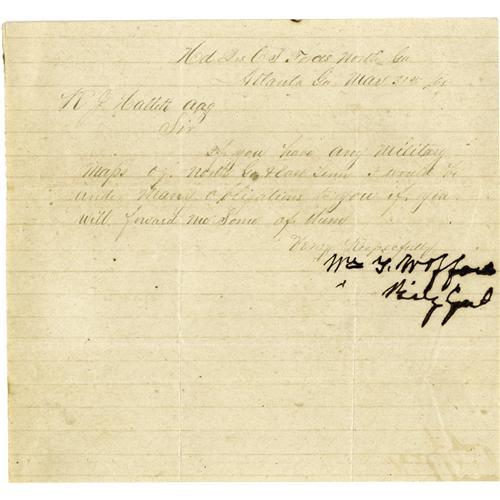 Hd Qrs C S Forces North Ga
Atlanta Ga Mar 21st
R J Hallett
Sir
If you have any Military
Maps of North Ga & East Tenn I would be
under Many obligations to you if you
will forward me Some of them
Very Respectfully
Wm T. Wofford
Brig Genl